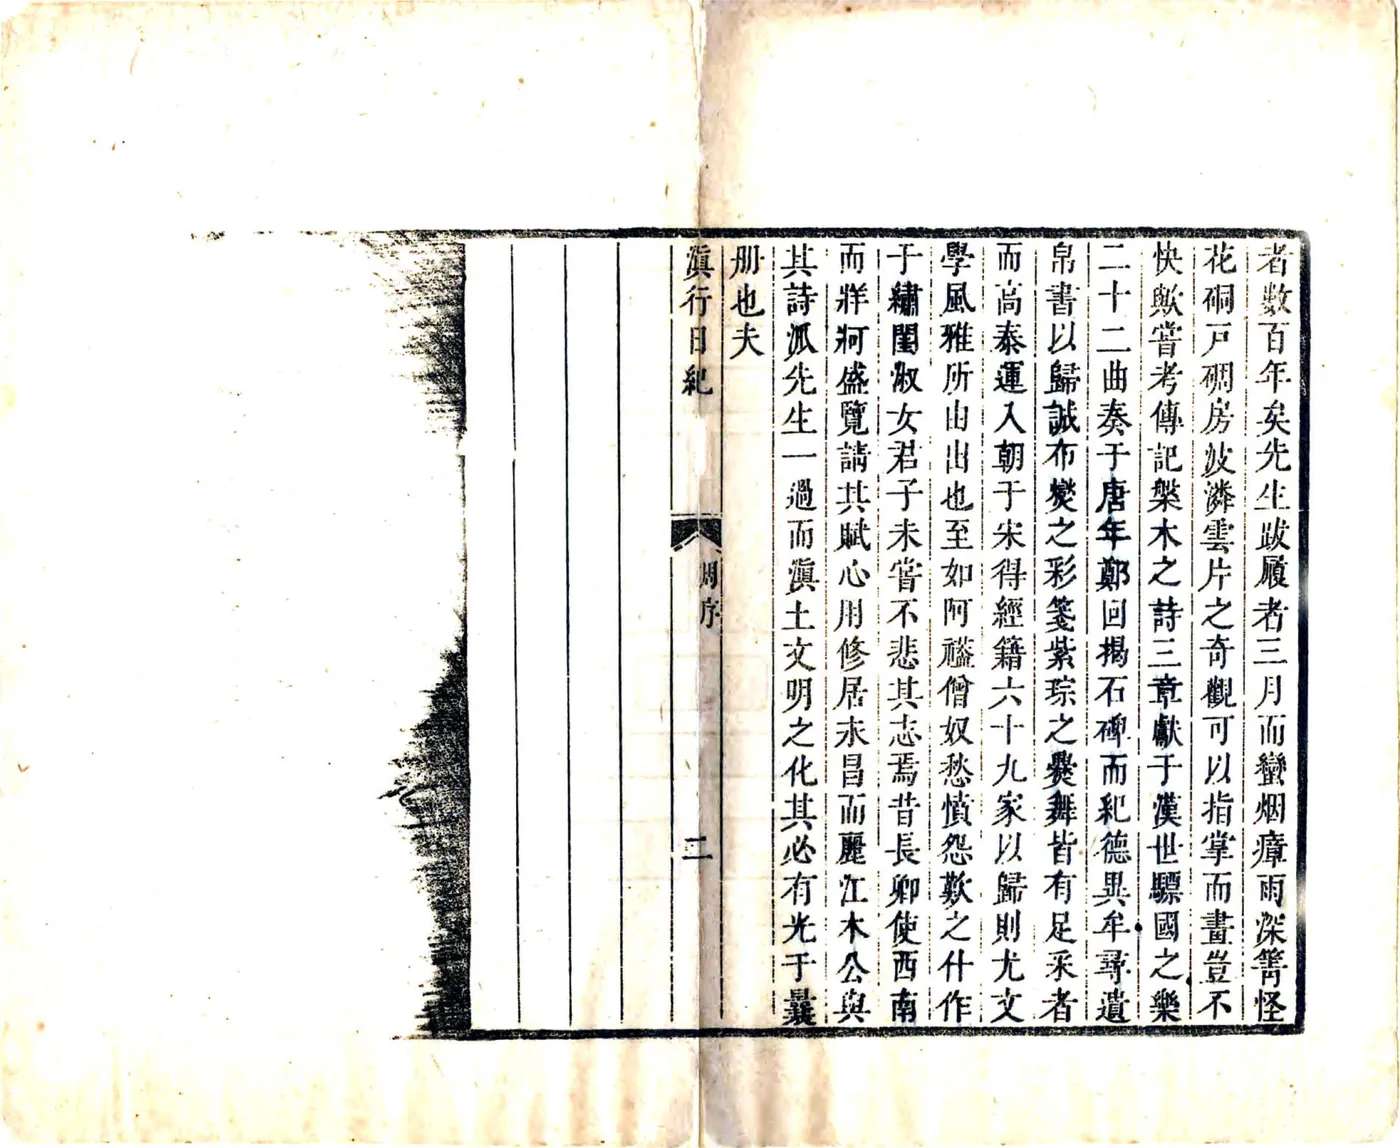 者數百年矣先生跋履者三月而蠻烟瘴雨深箐怪
花硐戸碉房波潾雲片之奇觀可以指掌而畫豈不
快歟嘗考傳記槃木之詩三章獻于漢世驃國之樂
二十二曲奏于唐年鄭回揭石碑而紀德異牟尋遺
帛書以歸誠布燮之彩箋紫琮之爨舞皆有足采者
而高泰運入朝于宋得經籍六十九家以歸則尤文
學風雅所由出也至如阿𧛾僧奴愁憤怨歎之什作
于繡閨淑女君子未嘗不悲其志焉昔長卿使西南
而牂牁盛覽請其賦心用修居永昌而麗江木公與
其詩派先生一過而滇土文明之化其必有光于曩
册也夫
滇行日紀
周序
二